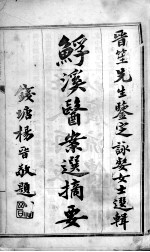 晉笙先生鑒定 詠絜女士選輯
鱘溪醫案選摘要
錢塘楊晉敬題